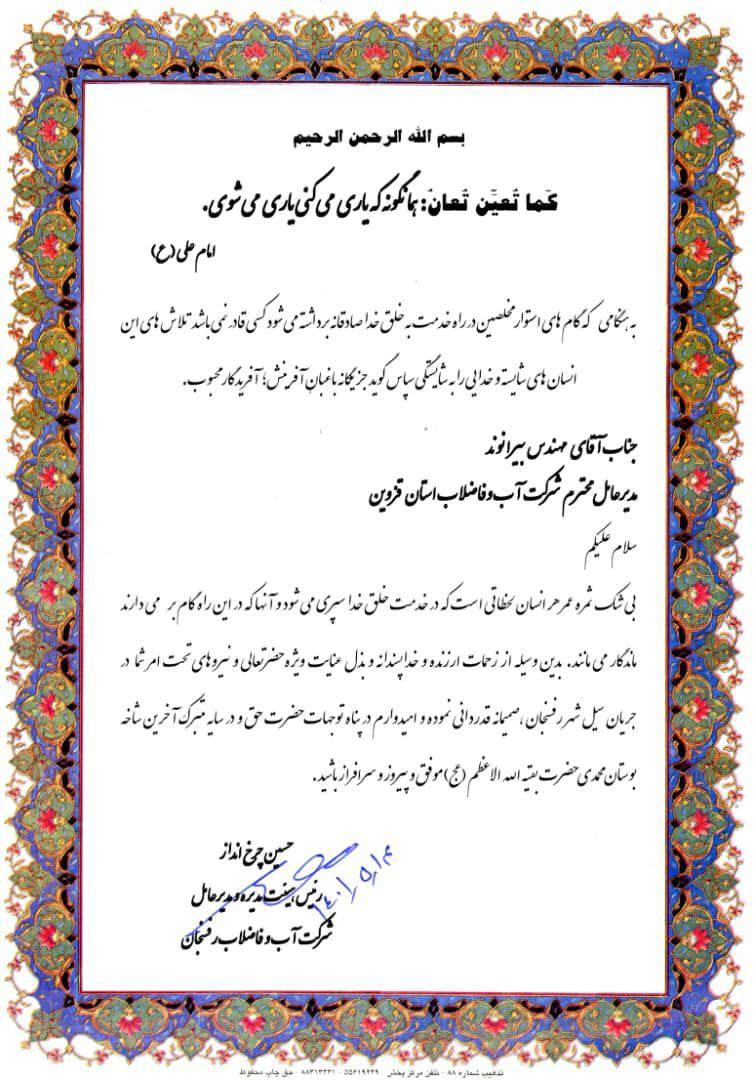 بسم الله الرحمن الرحیم
کَما تَعیَّن تَعانْ: همانگونه که یاری می کنی یاری می شوی.
امام علی (ع)
به هنگامی که گام های استوار مخلصین در راه خدمت به خلق خدا صادقانه برداشته می شود کسی قادر نمی باشد تلاش های این
انسان های شایسته و خدایی را به شایستگی سپاس گوید جز یگانه باغبان آفرینش؛ آفریدگار محبوب.
جناب آقای مهندس بیرانوند
مدیرعامل محترم شرکت آب و فاضلاب استان قزوین
سلام علیکم
بی شک ثمره عمر هر انسان لحظاتی است که در خدمت خلق خدا سپری می شود و آنها که در این راه گام بر می دارند
ماندگار می مانند. بدین وسیله از زحمات ارزنده و خداپسندانه و بذل عنایت ویژه حضرتعالی و نیروهای تحت امر شما در
جریان سیل شهر رفسنجان، صمیمانه قدردانی نموده و امیدوارم در پناه توجهات حضرت حق و در سایه متبرک آخرین شاخه
بوستان محمدی حضرت بقیه الله الاعظم (عج) موفق و پیروز و سرافراز باشید.
حسین چرخ انداز
رئیس هیئت مدیره و مدیرعامل
شرکت آب و فاضلاب رفسنجان
تذهیب شماره ۸۸ - تلفن مرکز پخش ۵۵۶۱۹۲۳۹ - ۸۸۳۱۳۲۳۱ - حق چاپ محفوظ